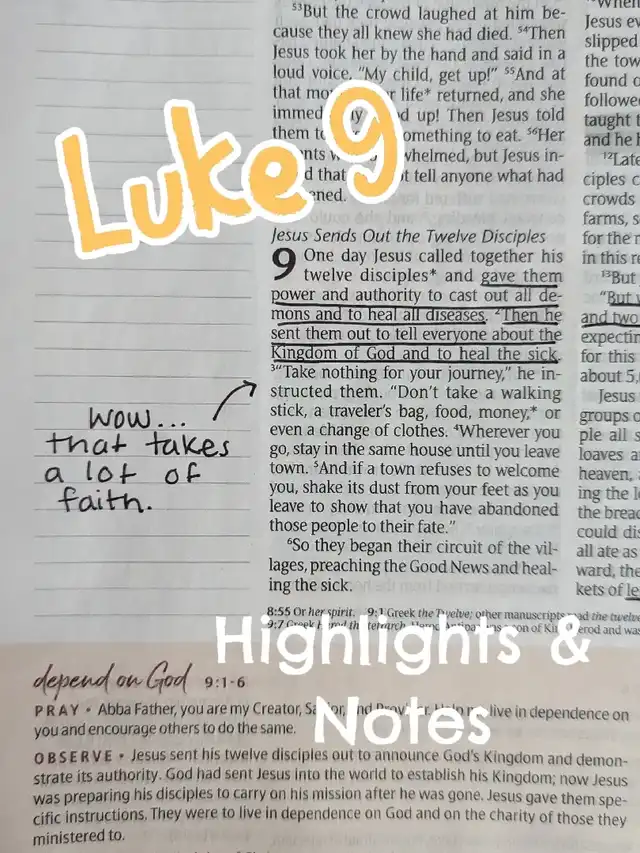 ⁵³But the crowd laughed at him be-
cause they all knew she had died. ⁵⁴Then
Jesus took her by the hand and said in a
loud voice, "My child, get up!" ⁵⁵And at
that life* returned, and she
up! Then Jesus told
them to something to eat. ⁵⁶Her
but Jesus in-
that tell anyone what had
Luke 9
Jesus Sends Out the Twelve Disciples
9 One day Jesus called together his
twelve disciples* and gave them
power and authority to cast out all de-
mons and to heal all diseases. ²Then he
sent them out to tell everyone about the
Kingdom of God and to heal the sick.
³"Take nothing for your journey," he in-
structed them. "Don't take a walking
stick, a traveler's bag, food, money,* or
even a change of clothes. ⁴Wherever you
go, stay in the same house until you leave
town. ⁵And if a town refuses to welcome
you, shake its dust from your feet as you
leave to show that you have abandoned
those people to their fate."
⁶So they began their circuit of the vil-
lages, preaching the Good News and heal-
ing the sick.
wow...
that takes
a lot of
faith.
Jesus
slipped
the
found
followe
taught
and he
¹²Late
ciples
crowds
farms,
for the
in this
¹³But
"But
and two
expectin
for this
about 5,
Jesus
groups
ple all
loaves
heaven,
ing the
the
could
all ate as
ward, the
kets of
8:55 Or her spirit. 9:1 Greek the Twelve; other manuscripts the twelve
9:7 Greek son of and
Highlights &
Notes
depend on God 9:1-6
PRAY • Abba Father, you are my Creator, and live in dependence on
you and encourage others to do the same.
OBSERVE • Jesus sent his twelve disciples out to announce God's Kingdom and demon-
strate its authority. God had sent Jesus into the world to establish his Kingdom; now Jesus
was preparing his disciples to carry on his mission after he was gone. Jesus gave them spe-
cific instructions. They were to live in dependence on God and on the charity of those they
ministered to.